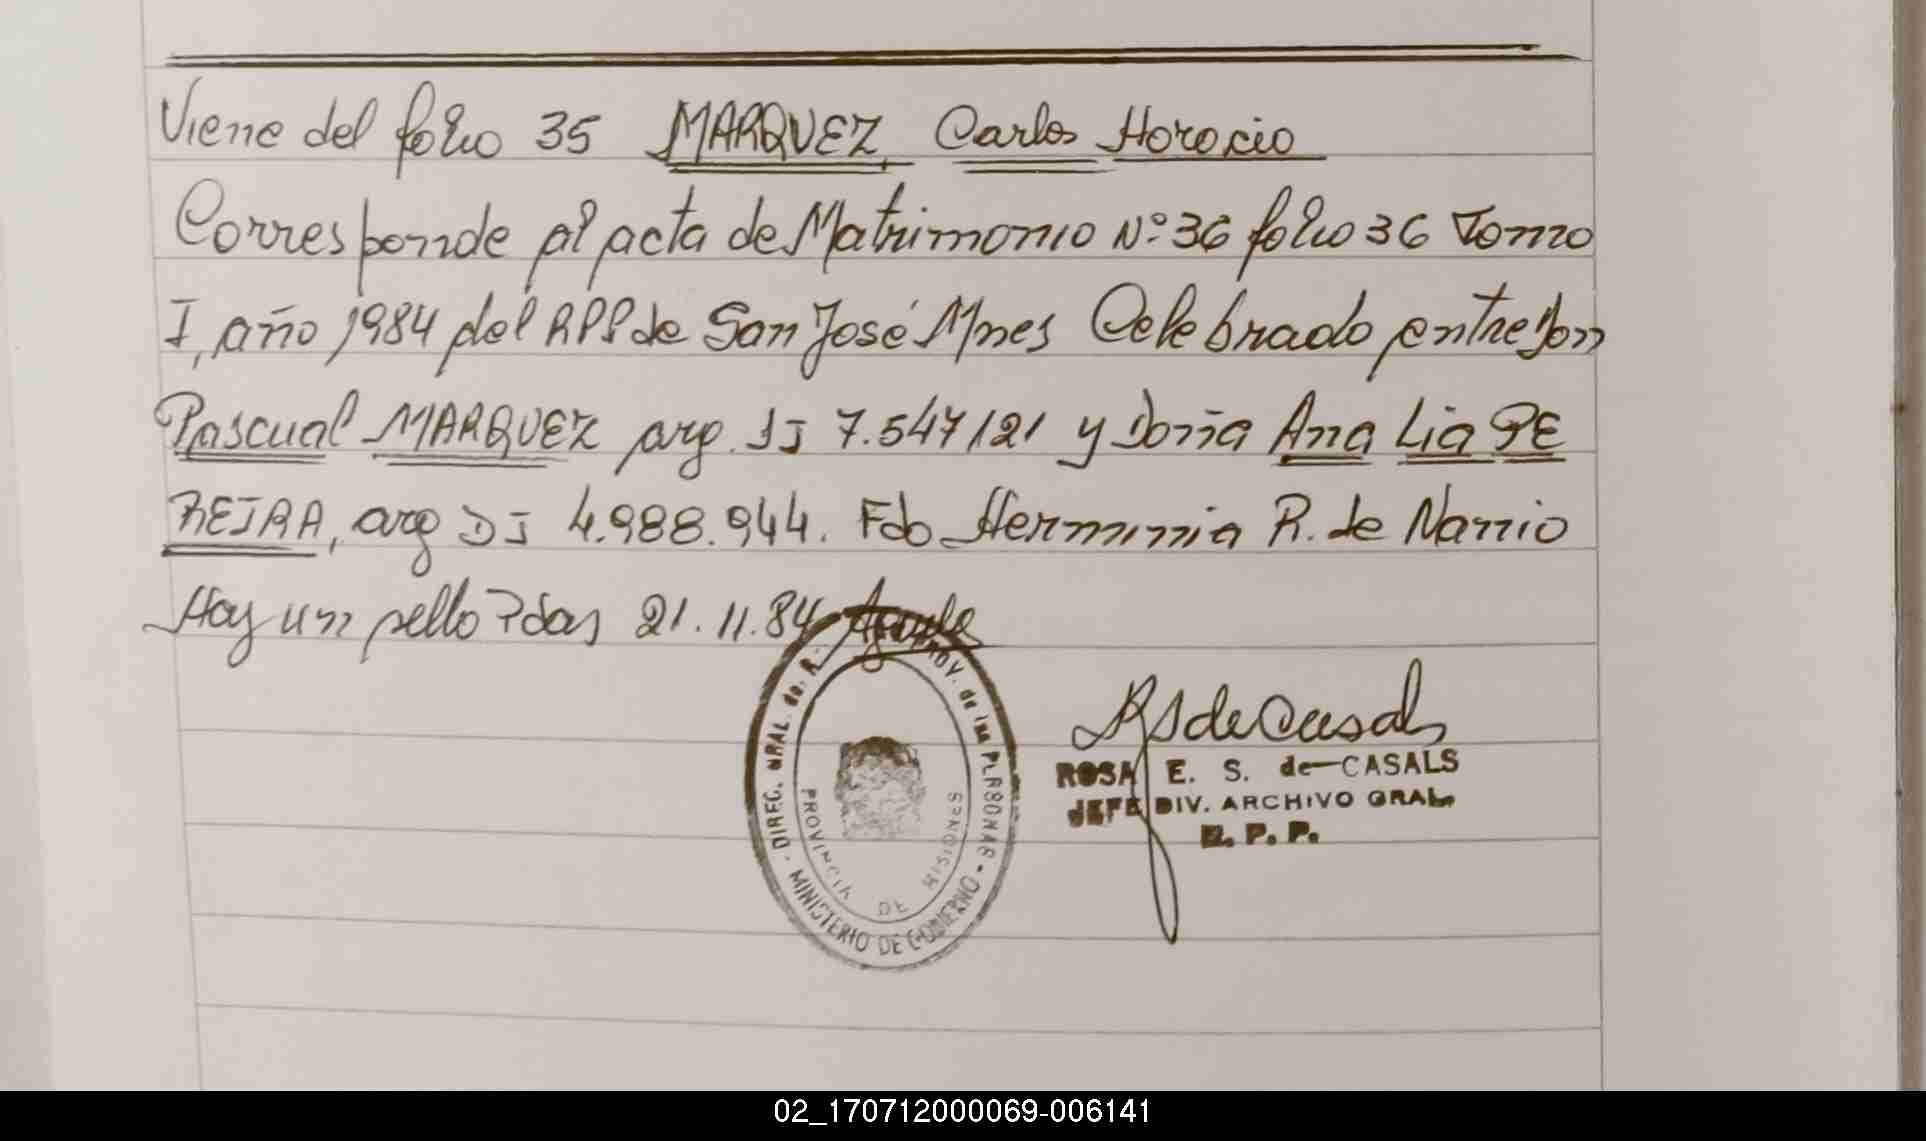 Viene del folio 35 MARQUEZ, Carlos Horacio
Corresponde al acta de Matrimonio Nº 36 folio 36 Tomo
I, año 1984 del RPP de San José Mnes Celebrado entre Don
Pascual MARQUEZ arg. DI 7.547121 y Doña Ana Lia PE
REIRA, arg DI 4.988.944. Fdo Herminia R. de Nannio
Hay un sello Pdas 21.11.84
DIREC. GRAL. de R. PROV. de las PERSONAS - MINISTERIO DE GOBIERNO -
PROVINCIA DE MISIONES
RS de Casals
ROSA E. S. de CASALS
JEFE DIV. ARCHIVO GRAL.
R. P. P.
02_170712000069-006141